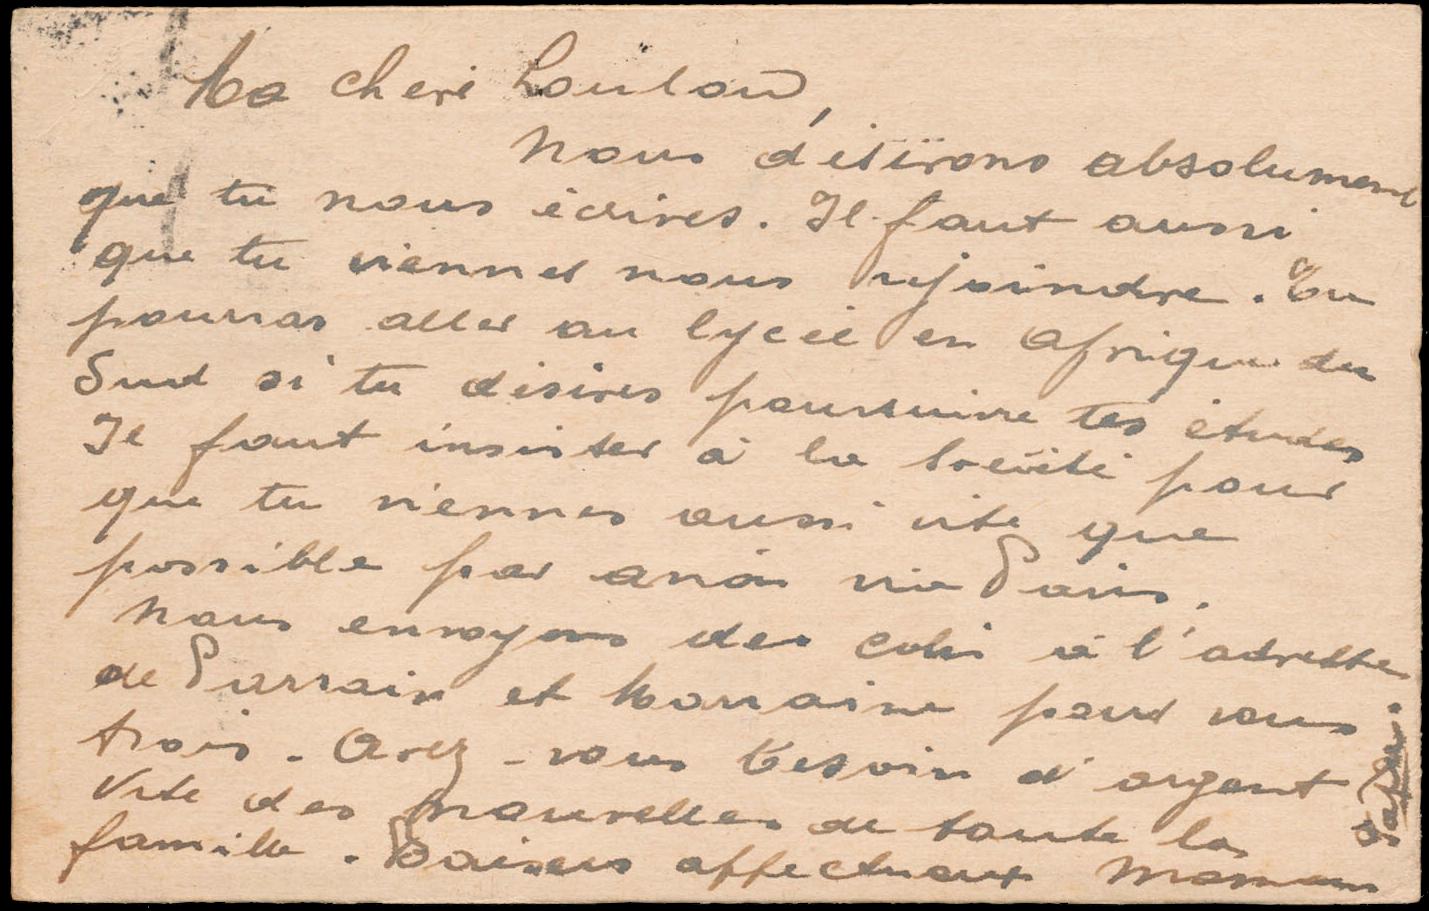 Ma cheri Loulou,
Nous désirons absolument
que tu nous écrives. Il faut aussi
que tu viennes nous rejoindre. Tu
pourras aller au lycée en Afrique du
Sud si tu désires poursuivre tes études
Il faut insister à la Société pour
que tu viennes aussi vite que
possible par avion via Paris.
Nous envoyons des colis à l'adresse
de Parrain et Marraine pour vous
trois. Avez-vous besoin d'argent
Vite des nouvelles de toute la
famille. Baisers affectueux Maman
Papa.